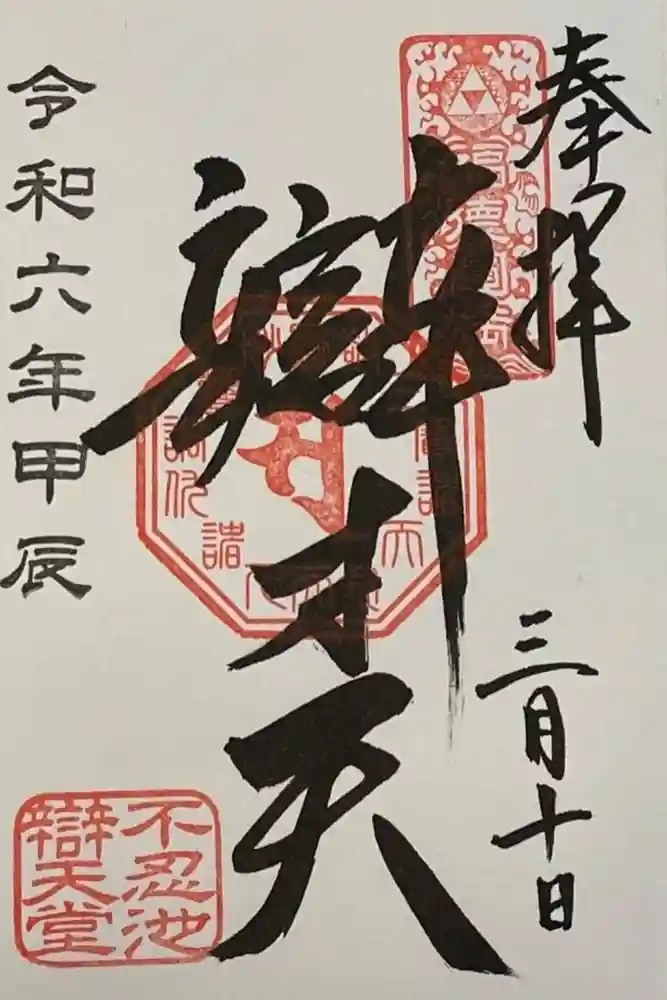 奉拝
三月十日
辯才天
令和六年甲辰
不忍池
辯天堂